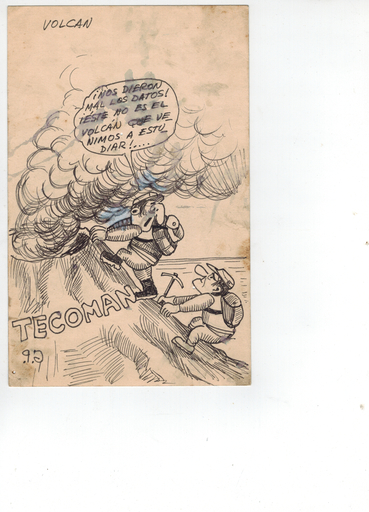 VOLCAN
¡NOS DIERON
MAL LOS DATOS!
¡ESTE NO ES EL
VOLCÁN QUE VE
NIMOS A ESTU
DIAR!....
TECOMAN